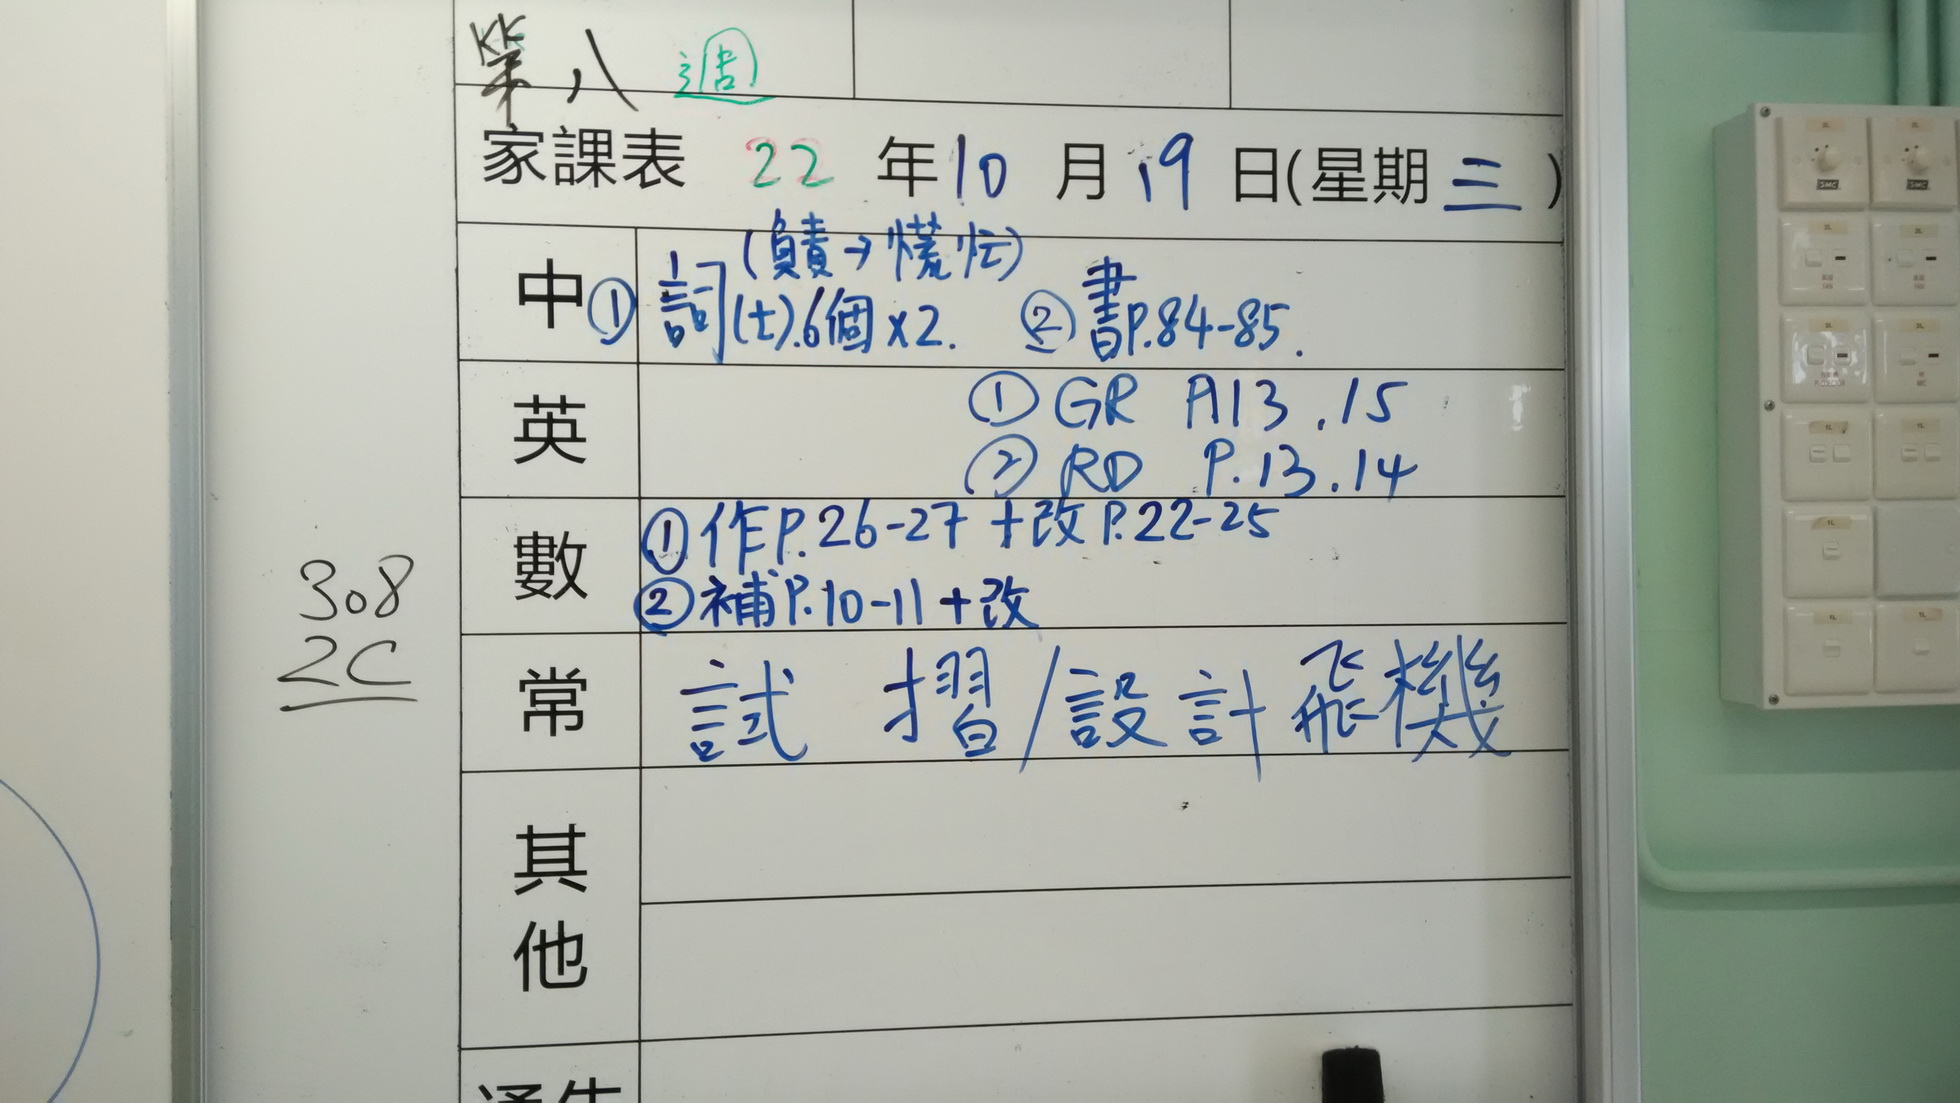 第八週
家課表 22 年 10 月 19 日(星期三)
中 (負責→慌忙)
① 詞(七).6個x2. ② 書P.84-85.
英 ① GR A13 .15
② RD P.13.14
數 ① 作P.26-27 +改P.22-25
② 補P.10-11 +改
308
2C
常 試 摺/設計飛機
其他
通告